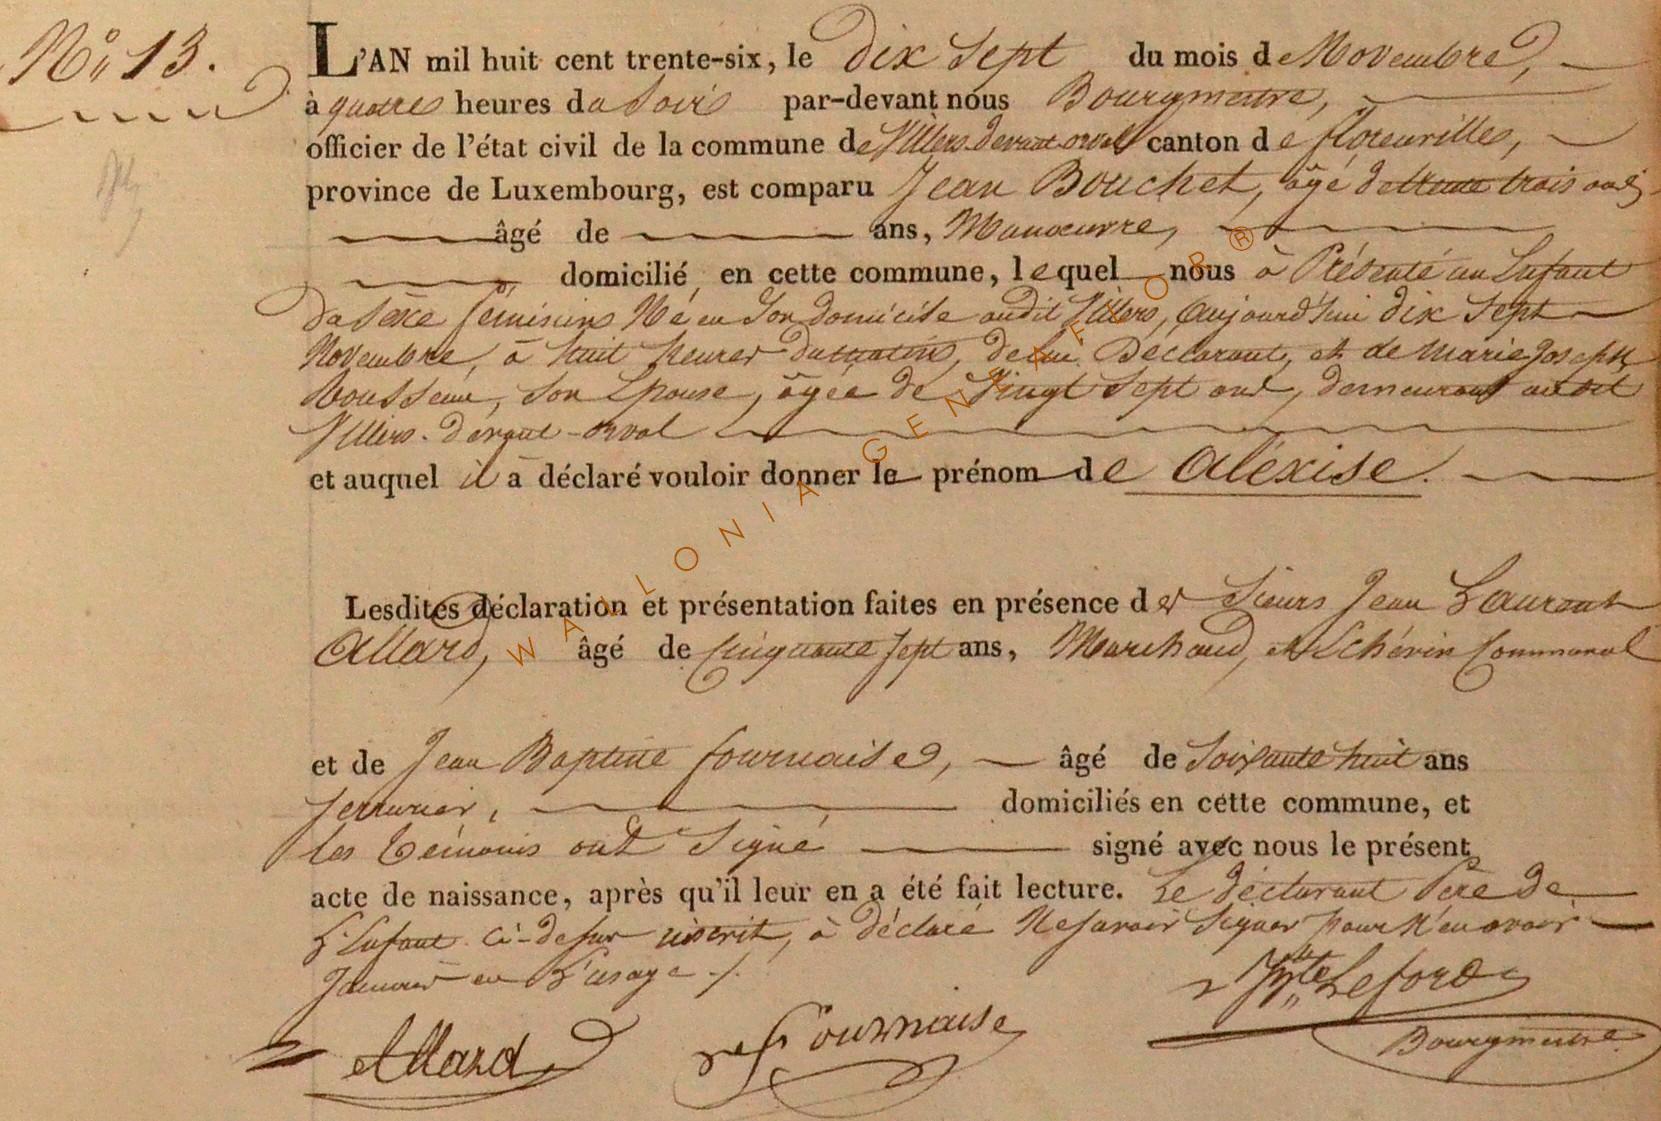 N° 13.
L'AN mil huit cent trente-six, le dix sept du mois de Novembre,
à quatre heures du Soir par-devant nous Bourgmestre,
officier de l'état civil de la commune de Villers-devant-orval canton de florenville,
province de Luxembourg, est comparu Jean Bouchet, âgé de trente trois ans
âgé de ans, Manoeuvre,
domicilié en cette commune, lequel nous à Présenté un Enfant
du séxe féminin Né en Son domicile audit Villers, aujourd'hui dix sept
Novembre, à huit heures du matin, de lui Déclarant, et de Marie Joseph
son Epouse, âgée de Vingt sept ans, demeurant audit
Villers-devant-orval
et auquel il à déclaré vouloir donner le prénom de Alexise.
Lesdites déclaration et présentation faites en présence des Sieurs Jean Laurent
Allard, âgé de Cinquante sept ans, Marchand, et Echévin Communal
et de Jean Baptiste fournaise, âgé de Soixante huit ans
serrurier, domiciliés en cette commune, et
les témoins ont Signé signé avec nous le présent
acte de naissance, après qu'il leur en a été fait lecture. Le déclarant Père de
L'Enfant ci-dessus inscrit, à déclaré Ne savoir Signer pour N'en avoir
Jamais eu L'usage ./.
Leford
Allard Fournaise
Bourgmestre
WALLONIA GENEAFLOR ®